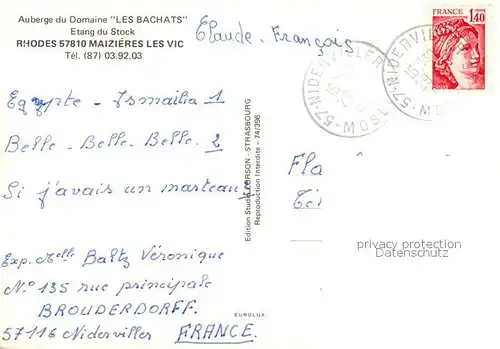 Auberge du Domaine "LES BACHATS"
Etang du Stock
RHODES 57810 MAIZIÈRES LES VIC
Tél. (87) 03.92.03
Claude-François
FRANCE
1,40
57-NIDERVILLER
MOSL
57-NIDERVILLER
MOSL
Egypte - Ismailia 1
Belle - Belle - Belle. 2
Si j'avais un marteau
Edition Studio CORSON - STRASBOURG
Reproduction Interdite - 74/396
Fla
privacy protection
Datenschutz
Exp. Melle Baltz Véronique
N.° 135 rue principale
BROUDERDORFF.
57116 Nidervilles FRANCE.
EUROLUX